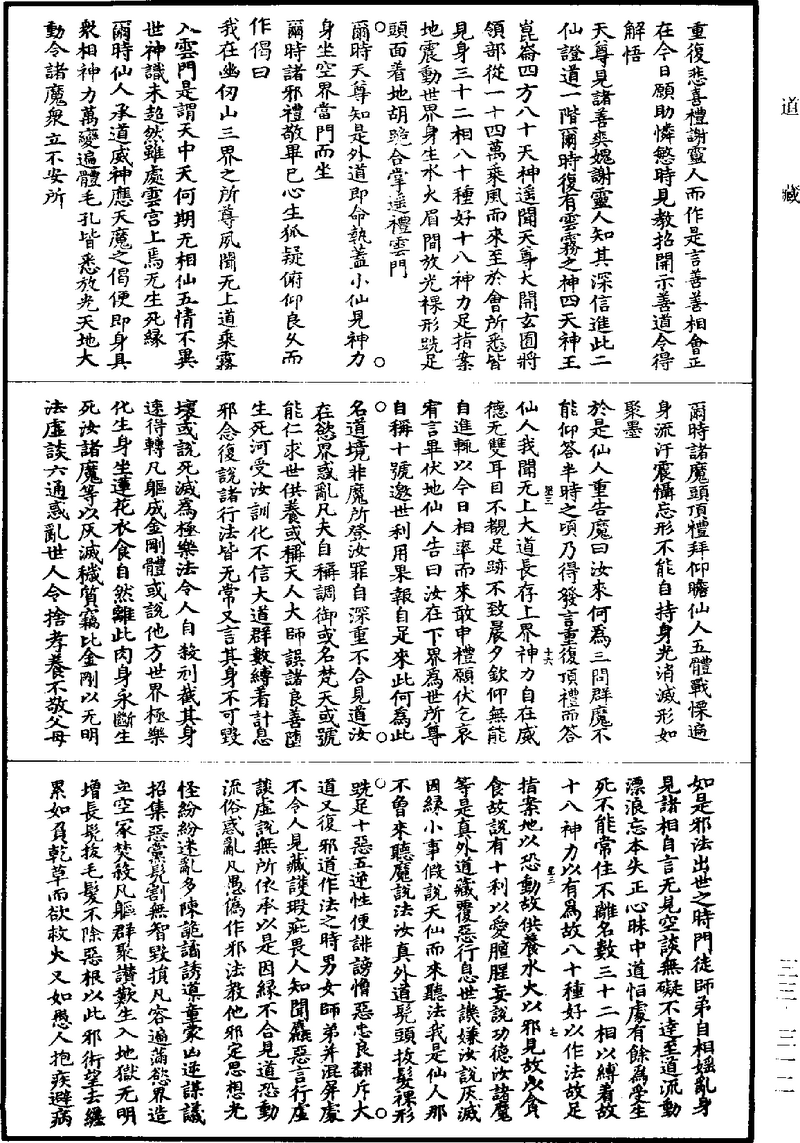 道藏
重復悲喜禮謝靈人而作是言善善相會正
在今日願助憐愍時見教招開示善道令得
解悟
天尊見諸善爽媿謝靈人知其深信進此二
仙證道一階爾時復有雲霧之神四天神王
崑崙四方八十天神遙聞天尊大開玄圃將
領部從一十四萬乘風而來至於會所悉皆
見身三十二相八十種好十八神力足指案
地震動世界身生水火眉間放光裸形跣足
頭面着地胡跪合掌遙禮雲門
爾時天尊知是外道即命執蓋小仙見神力
身坐空界當門而坐
爾時諸邪禮敬畢已心生狐疑俯仰良久而
作偈曰
我在幽仞山三界之所尊夙聞无上道乘霧
入雲門是謂天中天何期无相仙五情不異
世神識未超然雖處雲宮上焉无生死緣
爾時仙人承道威神應天魔之偈便即身具
衆相神力萬變遍體毛孔皆悉放光天地大
動令諸魔衆立不安所
爾時諸魔頭頂禮拜仰瞻仙人五體戰慄遍
身流汗震懾忘形不能自持身光消滅形如
聚墨
於是仙人重告魔曰汝來何為三問群魔不
能仰答半時之頃乃得發言重復頂禮而答
仙人我聞无上大道長存上界神力自在威
德无雙耳目不覩足跡不致晨夕欽仰無能
自進輒以今日相率而來敢申禮願伏乞哀
宥言畢伏地仙人告曰汝在下界為世所尊
自稱十號邀世利用果報自足來此何為此
名道境非魔所登汝罪自深重不合見道汝
在慾界惑亂凡夫自稱調御或名梵天或號
能仁求世供養或稱天人大師誤諸良善墮
生死河受汝訓化不信大道群數縛着計息
邪念復說諸行法皆无常又言其身不可毀
壞或說死滅為極樂法令人自殺刓截其身
速得轉凡軀成金剛體或說他方世界極樂
化生身坐蓮花衣食自然離此肉身永斷生
死汝諸魔等以灰滅穢質竊比金剛以无明
法虛談六通惑亂世人令捨孝養不敬父母
如是邪法出世之時門徒師弟自相婬亂身
見諸相自言无見空談無礙不達至道流動
漂浪忘本失正心昧中道怕處有餘為受生
死不能常住不離名數三十二相以縛着故
十八神力以有爲故八十種好以作法故足
指案地以恐動故供養水火以邪見故以貪
食故說有十利以愛膻腥妄說功德汝諸魔
等是真外道藏覆惡行息世譏嫌汝說灰滅
因緣小事假說天仙而來聽法我是仙人那
不魯來聽魔說法汝真外道髡頭拔髮裸形
跣足十惡五逆性便誹謗憎惡忠良翻斥大
道又復邪道作法之時男女師弟并混屏處
不令人見藏護瑕疵畏人知聞麤惡言行虛
談虛說無所依承以是因緣不合見道恐動
流俗惑亂凡愚僞作邪法教他邪定思想光
怪紛紛迷亂多陳詭譎誘導童蒙凶逆謀議
招集惡黨髡割無智毀損凡容遍滿慾界造
立空冢焚殺凡軀群聚讚歎生入地獄无明
增長髡拔毛髮不除惡根以此邪術望去纏
累如負乾草而欲救火又如愚人抱疾避病